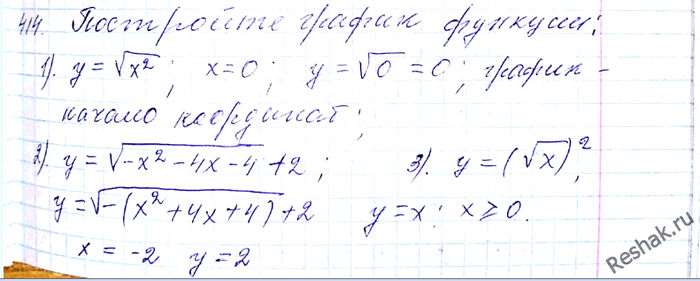 414. Постройте график функции:
1). y = √x²; x=0; y = √0 = 0; график -
начало координат;
2). y = √-x² - 4x - 4 + 2; 3). y = (√x)²,
y = √-(x² + 4x + 4) + 2 y = x: x ≥ 0.
x = -2 y = 2
Reshak.ru